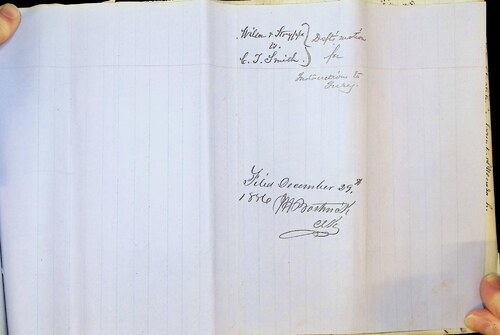 Wilson & Stryffe } Defts motion
vs. for
C. T. Smith. Instruction to
Jury.
Filed December 29th
1886
Clk